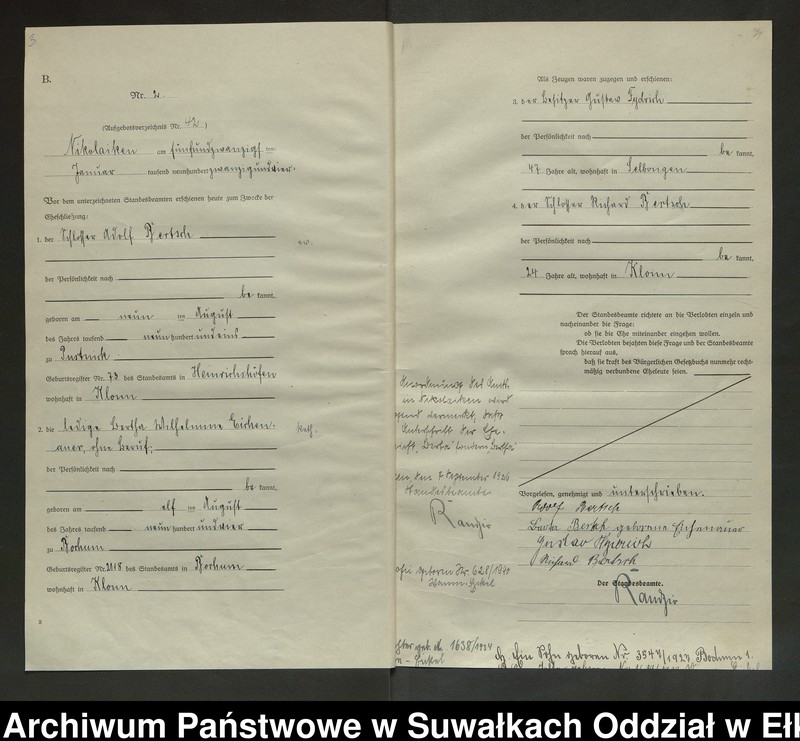 3
B.
Nr. 2.
(Aufgebotsverzeichnis Nr. 42)
Nikolaiken am fünfundzwanzigsten
Januar tausend neunhundert zwanzigundvier.
Vor dem unterzeichneten Standesbeamten erschienen heute zum Zwecke der
Eheschließung:
1. der Schlosser Adolf Bertsch
ev.
der Persönlichkeit nach
be kannt,
geboren am neun ten August
des Jahres tausend neun hundert und eins
zu
Geburtsregister Nr. 73 des Standesamts in Heinrichshöfen
wohnhaft in Klonn
2. die ledige Bertha Wilhelmine Eichen-
auer, ohne Beruf,
kath.
der Persönlichkeit nach
be kannt,
geboren am elf ten August
des Jahres tausend neun hundert und vier
zu Bochum
Geburtsregister Nr. 2018 des Standesamts in Bochum
wohnhaft in Klonn
Als Zeugen waren zugegen und erschienen:
3. der Besitzer Gustav
der Persönlichkeit nach
be kannt,
47 Jahre alt, wohnhaft in Selbongen
4. der Schlosser Richard Bertsch
der Persönlichkeit nach
be kannt,
24 Jahre alt, wohnhaft in Klonn
Der Standesbeamte richtete an die Verlobten einzeln und
nacheinander die Frage:
ob sie die Ehe miteinander eingehen wollen.
Die Verlobten bejahten diese Frage und der Standesbeamte
sprach hierauf aus,
daß sie kraft des Bürgerlichen Gesetzbuchs nunmehr recht-
mäßig verbundene Eheleute seien.
in Nikolaiken wird
vermerkt, daß
Unterschrift der Ehe-
"Berta" sondern "Bertha"
den 7. September 1926
Standesbeamte
Randzio
geboren Nr. 628/1940
Wanne-Eickel
Vorgelesen, genehmigt und unterschrieben.
Adolf Bertsch
Berta Bertsch geborene Eichenauer
Gustav
Richard Bertsch
Der Standesbeamte.
Randzio
geb. Nr. 1638/1924
Eickel
Ein Sohn geboren Nr. 3547/1927 Bochum 1.
Archiwum Państwowe w Suwałkach Oddział w Ełk